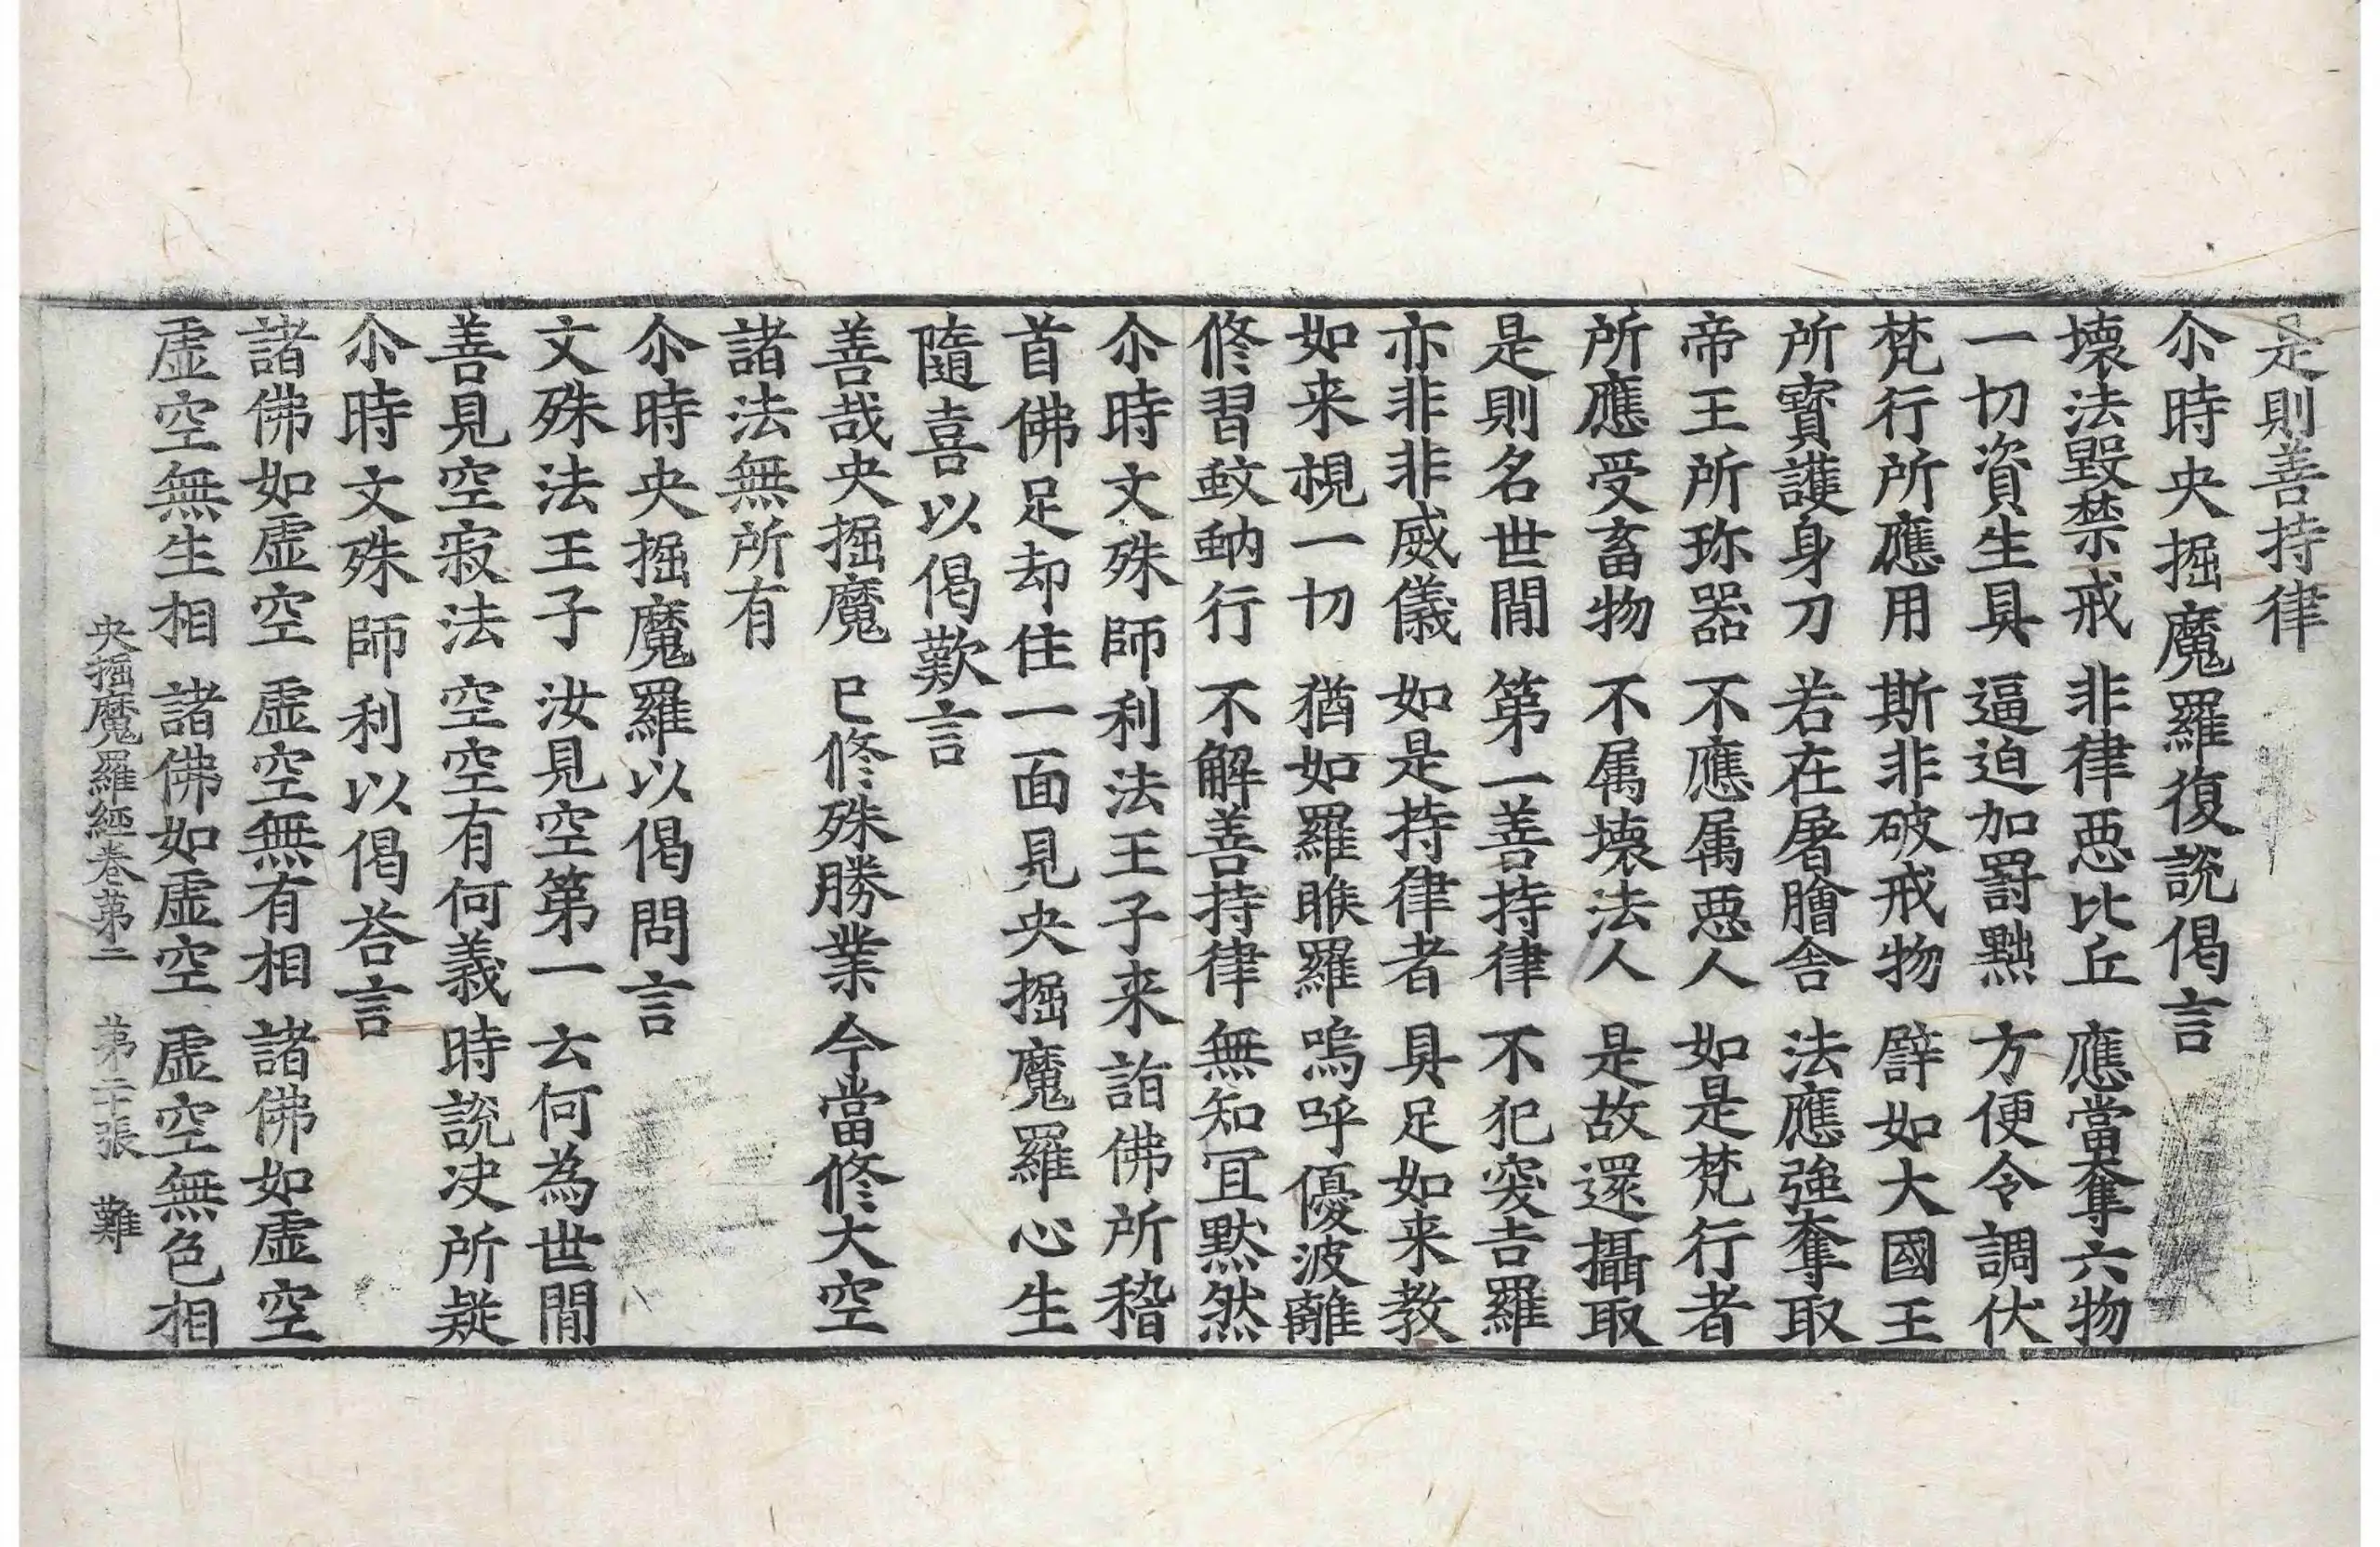 是則善持律
尒時央掘魔羅復說偈言
壞法毀禁戒　非律惡比丘　應當奪六物
一切資生具　逼迫加罸黜　方便令調伏
梵行所應用　斯非破戒物　譬如大國王
所寶護身刀　若在屠膾舍　法應強奪取
帝王所珎器　不應属惡人　如是梵行者
所應受畜物　不属壞法人　是故還攝取
是則名世間　第一善持律　不犯突吉羅
亦非非威儀　如是持律者　具足如来教
如来視一切　猶如羅睺羅　嗚呼優波離
修習蚊蚋行　不解善持律　無知冝默然
尒時文殊師利法王子来詣佛所稽
首佛足却住一面見央掘魔羅心生
隨喜以偈歎言
善哉央掘魔　已修殊勝業　今當修大空
諸法無所有
尒時央掘魔羅以偈問言
文殊法王子　汝見空第一　云何為世間
善見空寂法　空空有何義　時說决所疑
尒時文殊師利以偈荅言
諸佛如虛空　虛空無有相　諸佛如虛空
虛空無生相　諸佛如虛空　虛空無色相
央掘魔羅經卷苐二　苐二十張　難